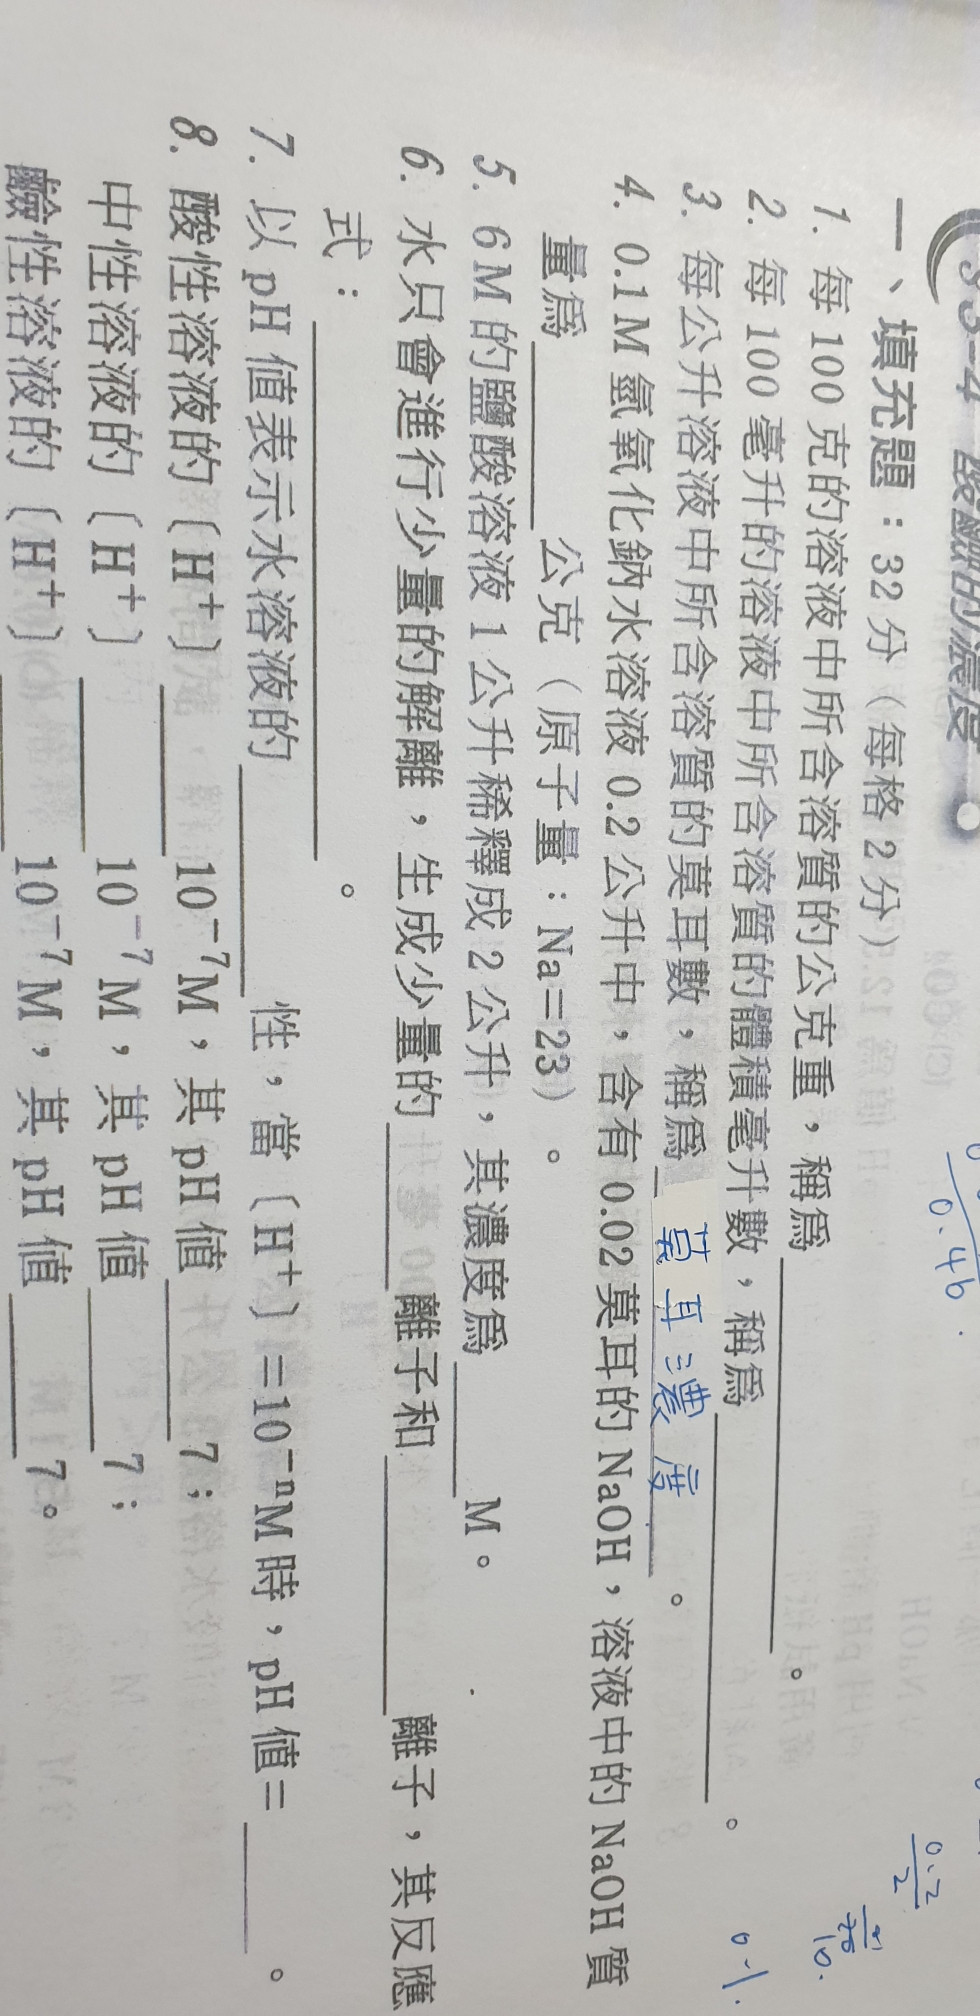 3-4 酸鹼的濃度
一、填充題：32分（每格2分）
1. 每100克的溶液中所含溶質的公克重，稱為＿＿＿＿。
2. 每100毫升的溶液中所含溶質的體積毫升數，稱為＿＿＿＿。
3. 每公升溶液中所含溶質的莫耳數，稱為 莫耳濃度 。
4. 0.1M氫氧化鈉水溶液0.2公升中，含有0.02莫耳的NaOH，溶液中的NaOH質
量為＿＿＿＿公克（原子量：Na=23）。
5. 6M的鹽酸溶液1公升稀釋成2公升，其濃度為＿＿＿＿M。
6. 水只會進行少量的解離，生成少量的＿＿＿＿離子和＿＿＿＿離子，其反應
式：＿＿＿＿。
7. 以pH值表示水溶液的＿＿＿＿性，當〔H⁺〕=10⁻ⁿM時，pH值=＿＿＿＿。
8. 酸性溶液的〔H⁺〕＿＿＿＿10⁻⁷M，其pH值＿＿＿＿7；
中性溶液的〔H⁺〕＿＿＿＿10⁻⁷M，其pH值＿＿＿＿7；
鹼性溶液的〔H⁺〕＿＿＿＿10⁻⁷M，其pH值＿＿＿＿7。
0.46
0.2
2
10.
0.1.